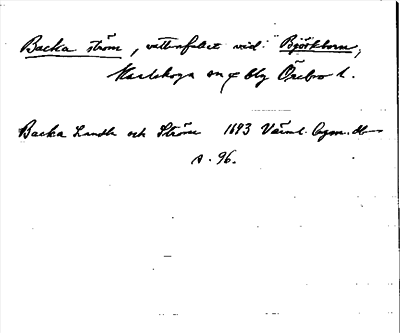 Backa ström, vattenfallet vid Björkborn,
Karlskoga sn o bg Örebro l.
Backa Landh och Ström 1693 Värml. Oym. db
s. 96.